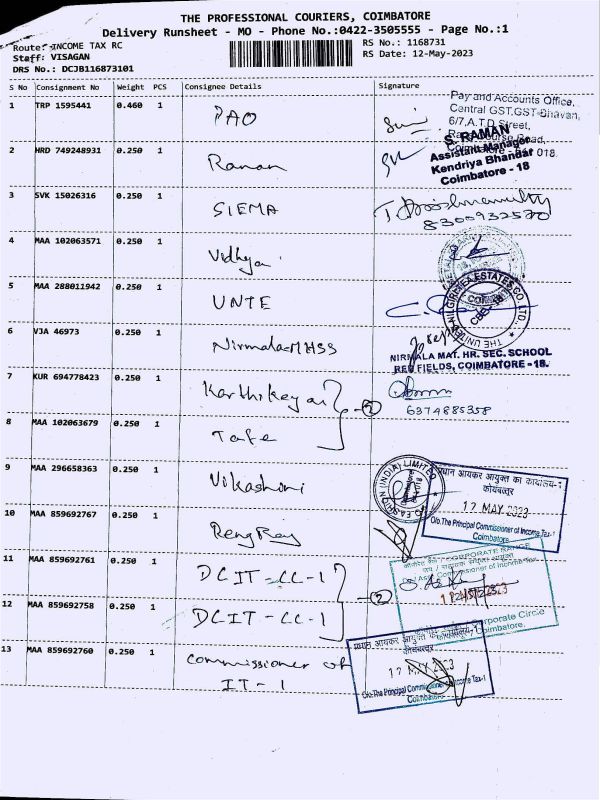 THE PROFESSIONAL COURIERS, COIMBATORE
Delivery Runsheet - MO - Phone No.:0422-3505555 - Page No.:1
Route: INCOME TAX RC
RS No.: 1168731
Staff: VISAGAN
RS Date: 12-May-2023
DRS No.: DCJB116873101
S No Consignment No Weight PCS Consignee Details Signature
1 TRP 1595441 0.460 1 PAO
Pay and Accounts Office,
Central GST, GST-Bhavan,
6/7, A.T.D Street,
2 HRD 749248931 0.250 1 Raman
S. RAMAN
Assistant Manager
Kendriya Bhandar
Coimbatore - 18
018.
3 SVK 15026316 0.250 1 SIEMA
8300932520
4 MAA 102063571 0.250 1 Vidhya
5 MAA 288011942 0.250 1 UNTE
THE UNITED NILGIRI TEA ESTATES CO. LTD.
6 VJA 46973 0.250 1 Nirmala MHSS
NIRMALA MAT. HR. SEC. SCHOOL
RED FIELDS, COIMBATORE - 18.
7 KUR 694778423 0.250 1 Karthikeyan
2
6374885358
8 MAA 102063679 0.250 1 Tafe
9 MAA 296658363 0.250 1 Vikashini
(INDIA) LIMITED
प्रधान आयकर आयुक्त का कार्यालय-1
कोयंबत्तूर
17 MAY 2023
O/o.The Principal Commissioner of Income Tax-1
Coimbatore.
10 MAA 859692767 0.250 1
11 MAA 859692761 0.250 1 DCIT-CC-1
CORPORATE RANGE
2
12 MAA 859692758 0.250 1 DCIT-CC-1
Corporate Circle
Coimbatore.
13 MAA 859692760 0.250 1 Commissioner of
IT-1
प्रधान आयकर आयुक्त का कार्यालय-1
17 MAY 2023
O/o.The Principal Commissioner of Income Tax-1
Coimbatore